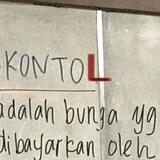 KONTOL
adalah bunga yg
dibayarkan oleh